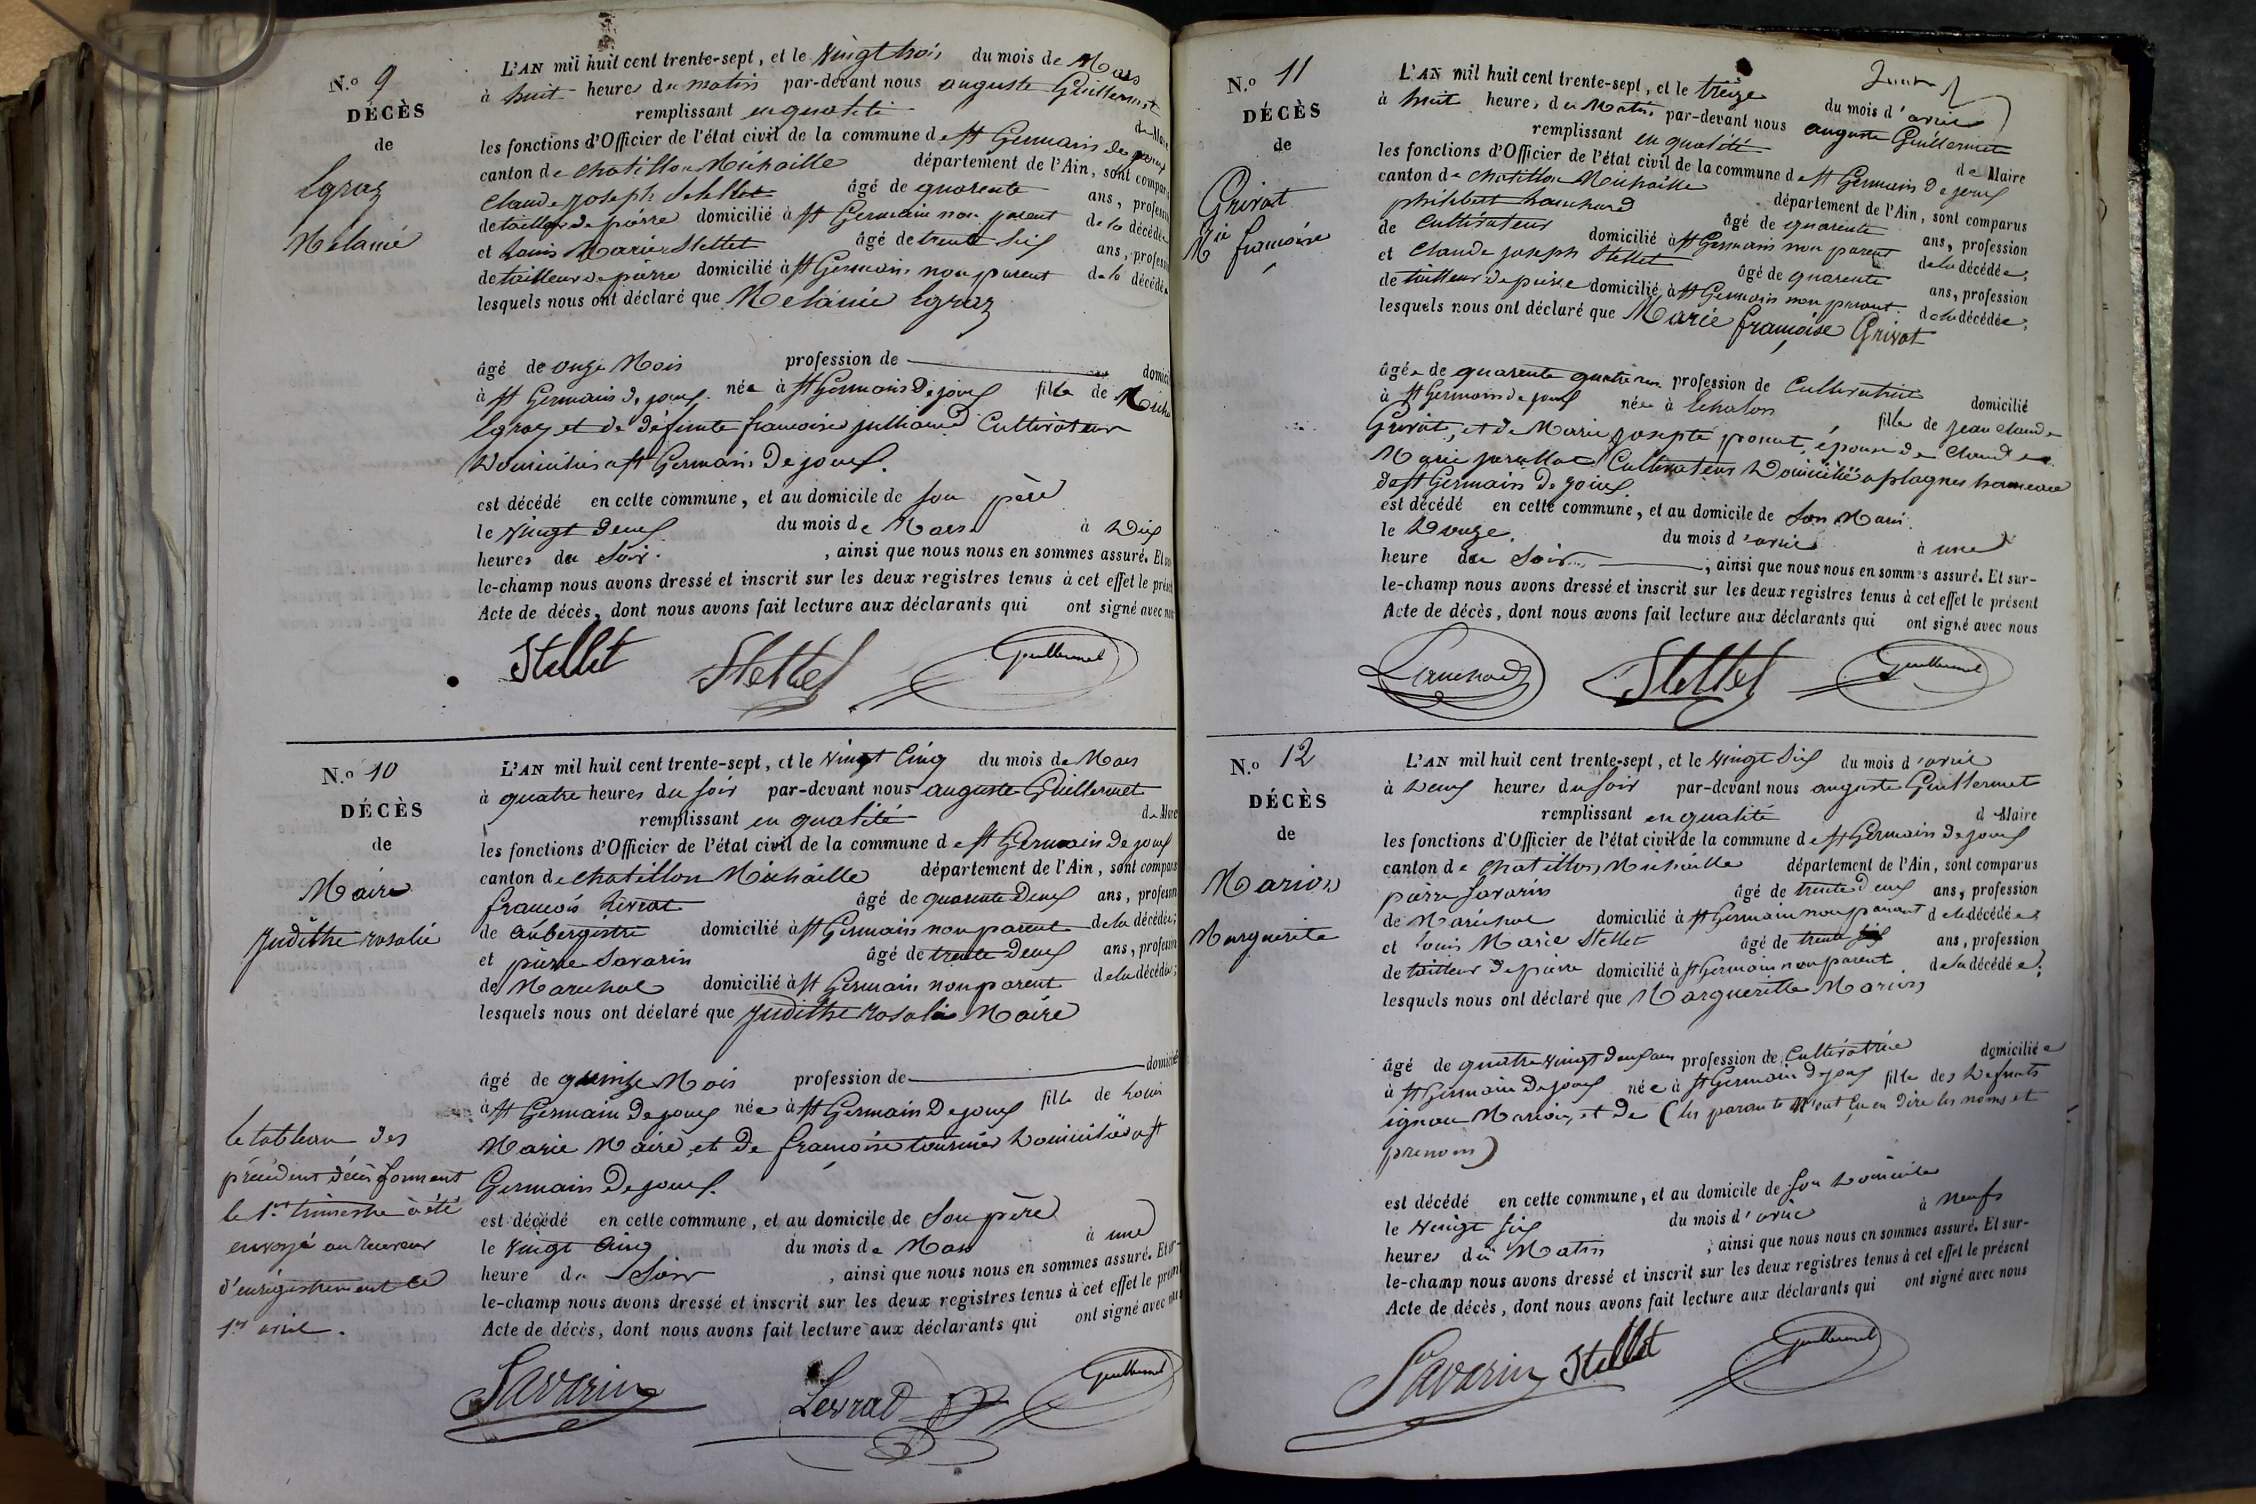 N.º 9
DÉCÈS
de
Egraz
Mélanie
L'AN mil huit cent trente-sept, et le vingt trois du mois de Mars
à huit heures du matin par-devant nous auguste Guillermet
remplissant en qualité de Maire
les fonctions d'Officier de l'état civil de la commune de St Germain de joux
canton de chatillon Michaille département de l'Ain, sont comparus
Claude joseph Stellet âgé de quarente ans, profession
de tailleur de pierre domicilié à St Germain non parent de la décédée
et Louis Marie Stellet âgé de trente six ans, profession
de tailleur de pierre domicilié à St Germain non parent de la décédée
lesquels nous ont déclaré que Mélanie Egraz
âgé de onze Mois profession de domicilié
à St Germain de joux née à St Germain De joux fille de
Egraz et de défunte francoise julliard Cultivateur
Domiciliés a St Germain De joux.
est décédé en cette commune, et au domicile de son père
le vingt deux du mois de Mars à Dix
heures du soir. , ainsi que nous nous en sommes assuré. Et sur-
le-champ nous avons dressé et inscrit sur les deux registres tenus à cet effet le présent
Acte de décès, dont nous avons fait lecture aux déclarants qui ont signé avec nous
Stellet Stellet Guillermet
N.º 10
DÉCÈS
de
Maire
Judithe rosalie
L'AN mil huit cent trente-sept, et le vingt Cinq du mois de Mars
à quatre heures du soir par-devant nous auguste Guillermet
remplissant en qualité de Maire
les fonctions d'Officier de l'état civil de la commune de St Germain De joux
canton de chatillon Michaille département de l'Ain, sont comparus
francois Levrat âgé de quarente Deux ans, profession
de aubergiste domicilié à St Germain non parent de la décédée;
et pierre Savarin âgé de trente Deux ans, profession
de Marechal domicilié à St Germain non parent de la décédée;
lesquels nous ont déclaré que Judithe rosalie Maire
âgé de quinze Mois profession de domicilié
à St Germain De joux née à St Germain De joux fille de Louis
Marie Maire, et de francoise tournier Domiciliés a St
Germain De joux.
est décédé en cette commune, et au domicile de Son père
le vingt Cinq du mois de Mars à une
heure du Soir , ainsi que nous nous en sommes assuré. Et sur-
le-champ nous avons dressé et inscrit sur les deux registres tenus à cet effet le présent
Acte de décès, dont nous avons fait lecture aux déclarants qui ont signé avec nous
le tableau des
précédent décès formant
le 1er trimestre à été
envoyé au receveur
d'enrégistrement le
1er avril.
Savarin Levrat Guillermet
N.º 11
DÉCÈS
de
Grivat
Mie francoise
L'AN mil huit cent trente-sept, et le treize du mois d'avril
à huit heures du Matin par-devant nous auguste Guillermet
remplissant en qualité de Maire
les fonctions d'Officier de l'état civil de la commune de St Germain De joux
canton de chatillon Michaille département de l'Ain, sont comparus
philibert âgé de quarente ans, profession
de Cultivateur domicilié à St Germain non parent de la décédée;
et Claude joseph Stellet âgé de quarente ans, profession
de tailleur de pierre domicilié à St Germain non parent de la décédée;
lesquels nous ont déclaré que Marie francoise Grivat
âgée de quarente quatre ans profession de Cultivatrice domicilié
à St Germain de joux née à Echalon fille de jean claude
Grivat, et de Marie josepte ponut, épouse de Claude
Marie Cultivateur Domicilié a plagnes hameau
de St Germain De joux.
est décédé en cette commune, et au domicile de Son Mari.
le Douze du mois d'avril à une
heure du Soir ; ainsi que nous nous en sommes assuré. Et sur-
le-champ nous avons dressé et inscrit sur les deux registres tenus à cet effet le présent
Acte de décès, dont nous avons fait lecture aux déclarants qui ont signé avec nous
Stellet Guillermet
N.º 12
DÉCÈS
de
Marion
Marguerite
L'AN mil huit cent trente-sept, et le vingt Six du mois d'avril
à Deux heures du soir par-devant nous auguste Guillermet
remplissant en qualité de Maire
les fonctions d'Officier de l'état civil de la commune de St Germain De joux
canton de chatillon Michaille département de l'Ain, sont comparus
pierre Savarin âgé de trente Deux ans, profession
de Maréchal domicilié à St Germain non parent de la décédée;
et Louis Marie Stellet âgé de trente six ans, profession
de tailleur De pierre domicilié à St Germain non parent de la décédée;
lesquels nous ont déclaré que Margueritte Marion
âgé de quatre vingt deux ans profession de Cultivatrice domiciliée
à St Germain De joux née à St Germain De joux fille des Défunts
Marion, et de (les parants n'ont su en dire les noms et
prenoms)
est décédé en cette commune, et au domicile de son Domicile
le vingt six du mois d'avril à neufs
heures du Matin ; ainsi que nous nous en sommes assuré. Et sur-
le-champ nous avons dressé et inscrit sur les deux registres tenus à cet effet le présent
Acte de décès, dont nous avons fait lecture aux déclarants qui ont signé avec nous
Savarin Stellet Guillermet